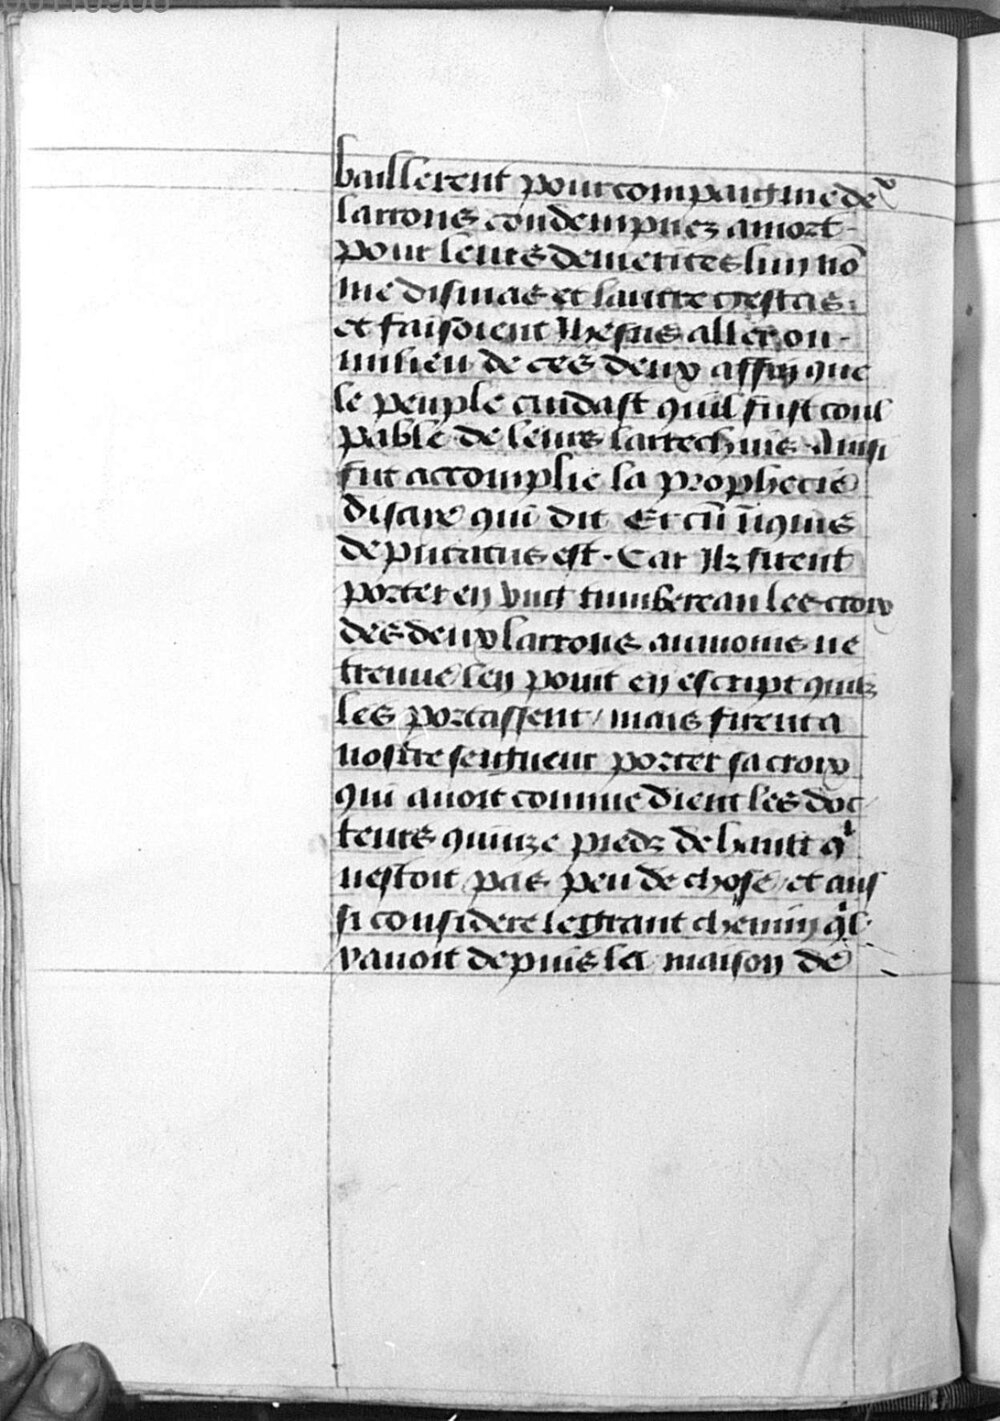 baillerent pour compaignie de
larrons condempnez a mort
pour leurs demerites lun nō
me dismas et lautre gestas
et faisoient Jhesus aller ou
milieu de ces deux affin que
le peuple cuidast quil fust coul
pable de leurs larrechins Ainsi
fut accomplie la prophecie
disaye qui dit Et cū īiquis
deputatus est. Car Jlz firent
porter en vng tumbereau les croix
des deux larrons aumoins ne
treuue len point en escript quilz
les portassent / mais firent a
nostre seigneur porter sa croix
qui auoit comme dient les doc
teurs quinze piedz de hault qⁱ
nestoit pas peu de chose / et aus
si considere le grant chemin qⁱl
yauoit depuis la maison de